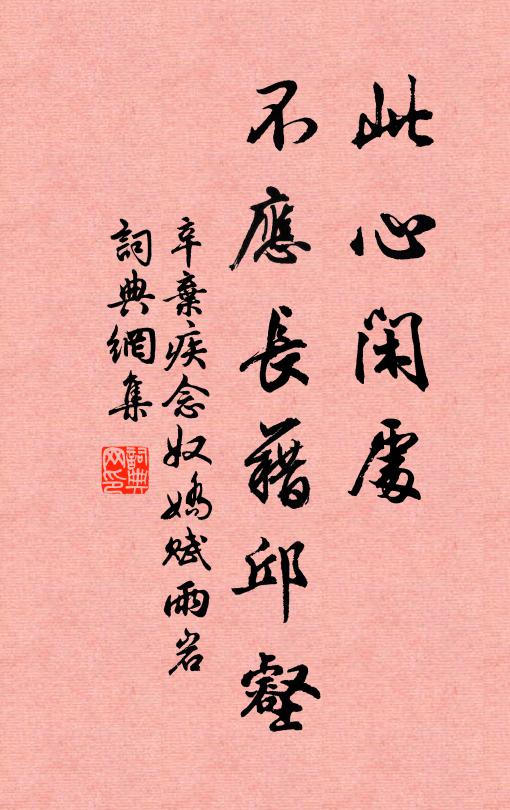 此心閑處
不應長藉邱壑
辛棄疾念奴嬌賦雨岩
詞典網集
詞典网印